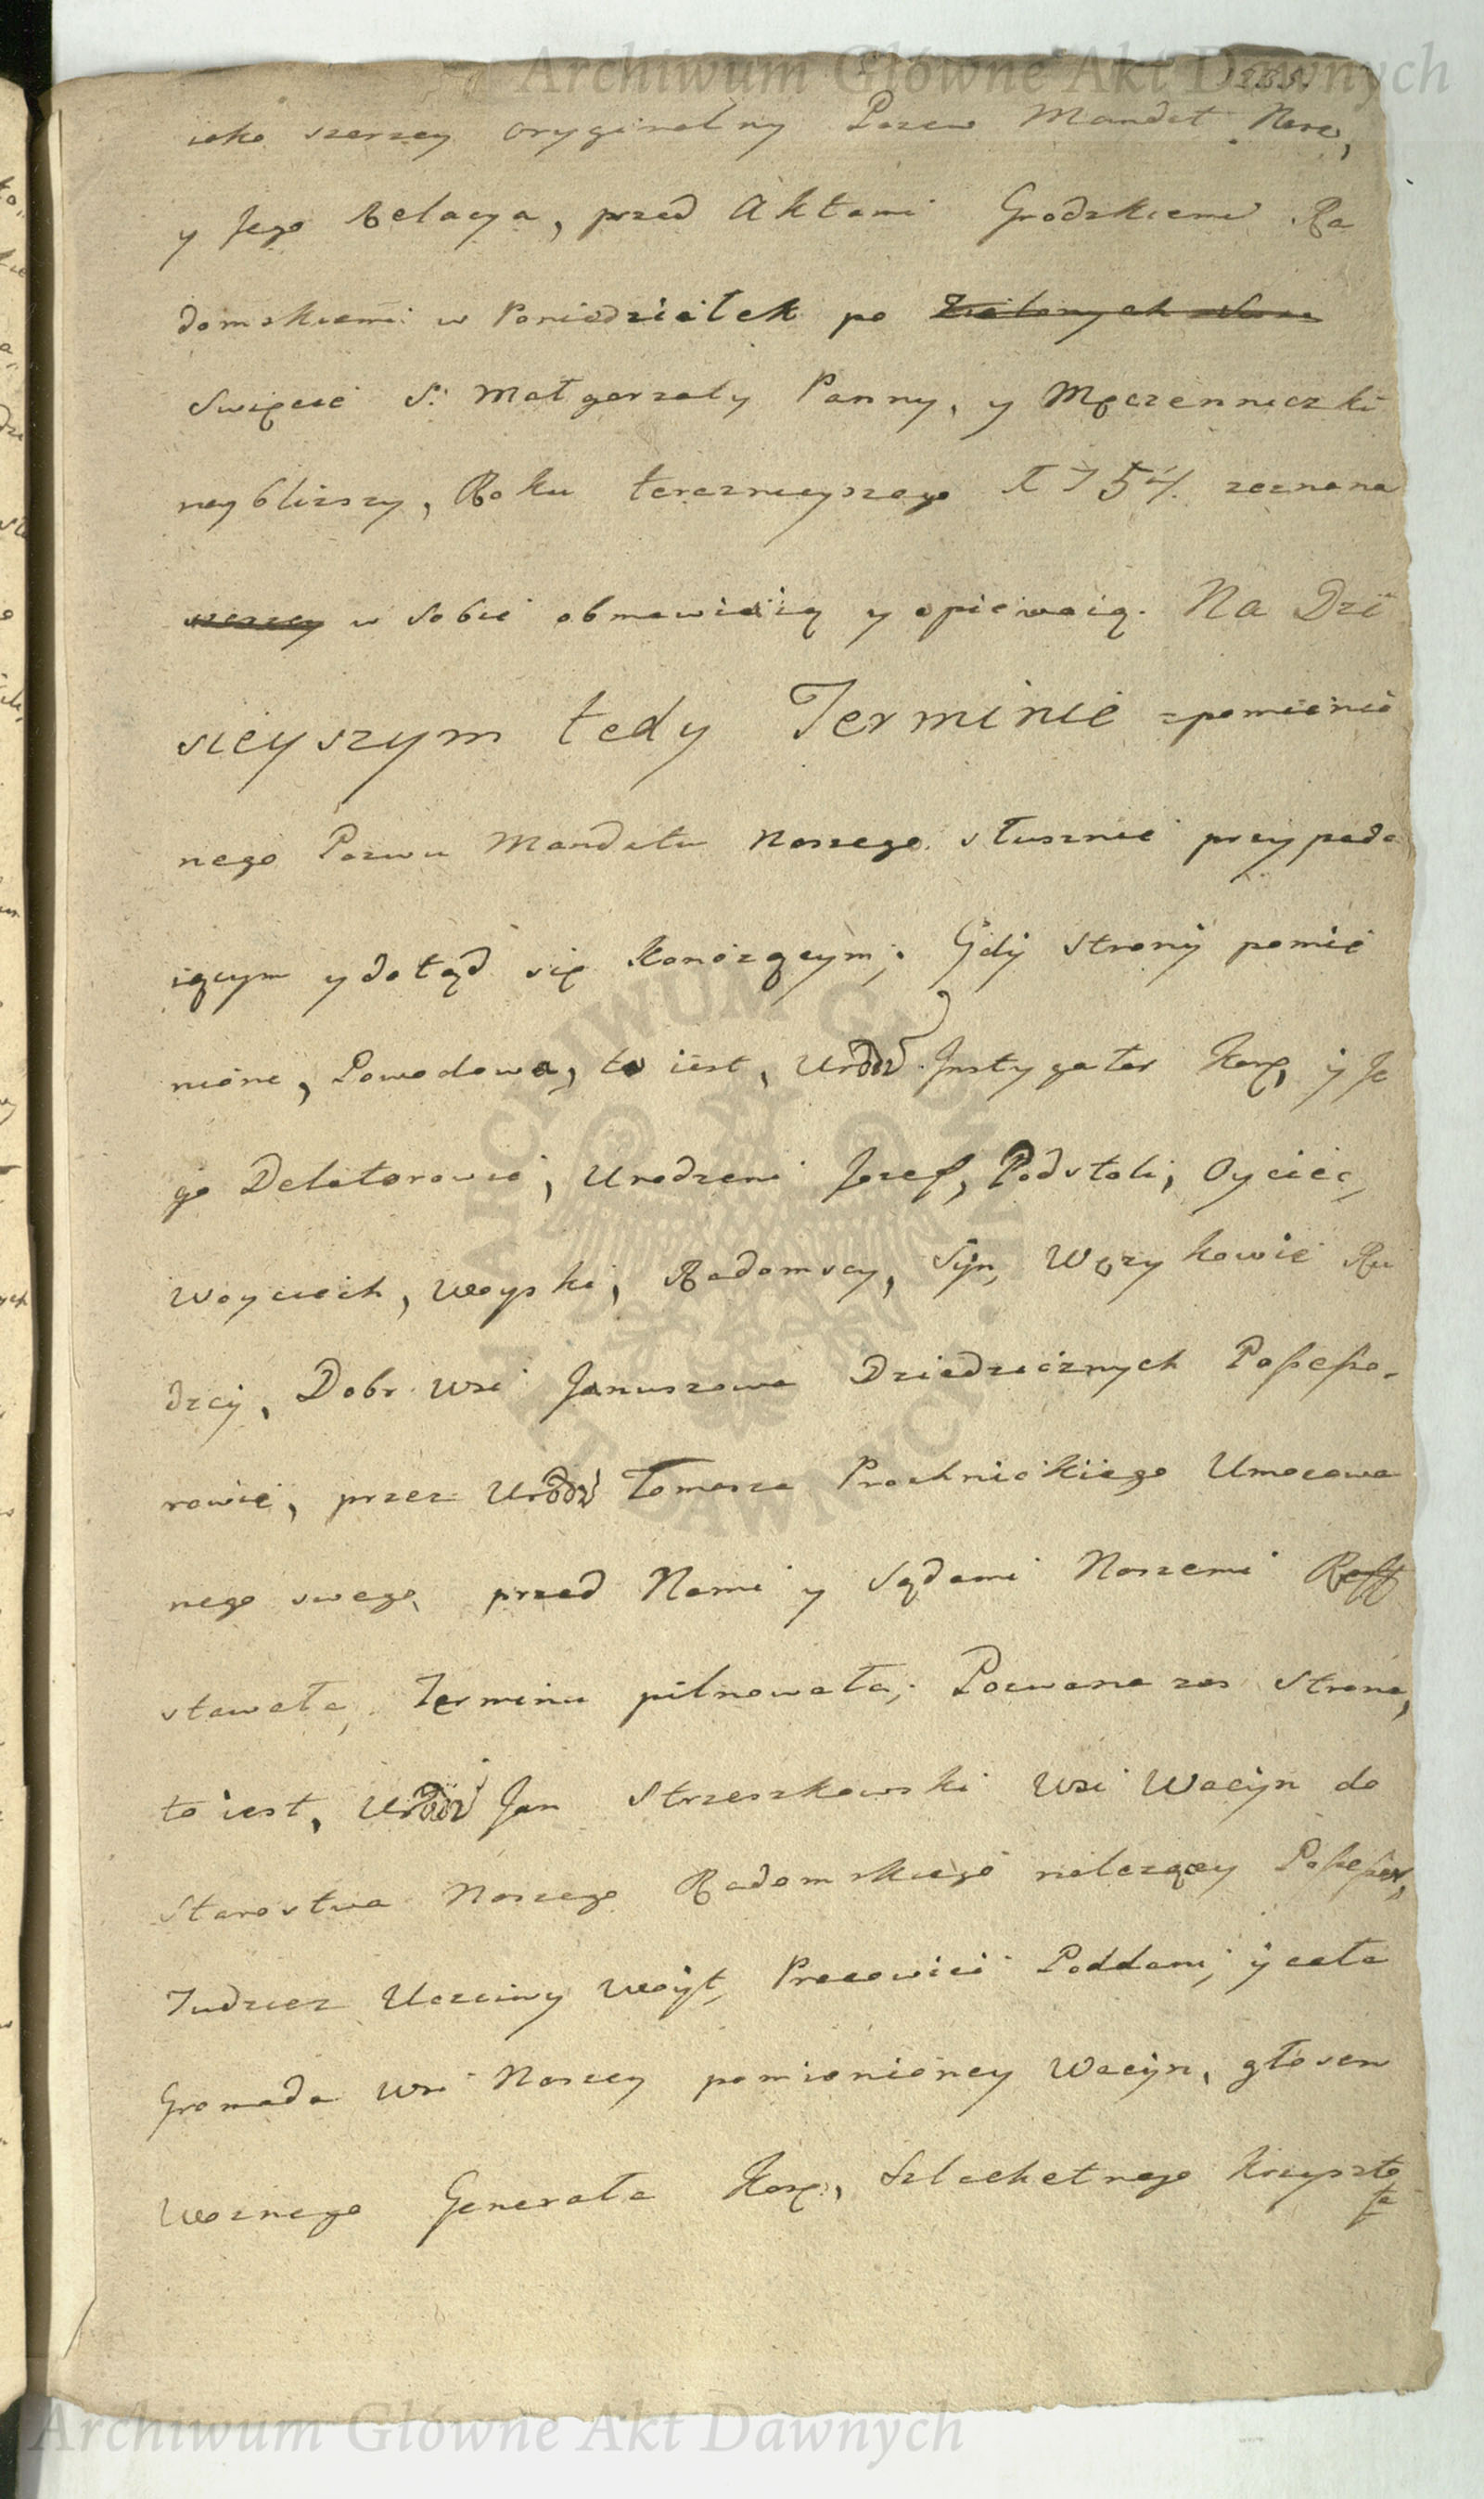 Archiwum Główne Akt Dawnych
235.
iako szerzey oryginalny Pozew Mandat Nasz,
y Jego Relacya, przed Aktami Grodzkiemi Ra
domskiemi w Poniedziałek po Zielonych
Swięcie S: Małgorzaty Panny, y Męczenniczki
naybliższy, Roku teraznieyszego 1754. zeznana
szerzey w sobie obmawiaią y opiewaią. Na Dzi
sieyszym tedy Terminie zpomienio
nego Pozwu Mandatu Naszego słusznie przypada
iącym y dotąd się konczącym; Gdÿ Stronÿ pomie
nióne, Powodowa, to iest, Urodź. Instygator Kor., ÿ Je
go Delatorowie, Urodzeni Jozef, Podstoli, Oyciec,
Woyciech, Woyski, Radomscy, Sÿn, Wężykowie Ru
dzcÿ, Dobr Wsi Januszowa Dziedzicznych Possesso-
rowie, przez Urodź Tomasza Prochnickiego Umocowa
nego swego, przed Nami y Sądami Naszemi
stawała, Terminu pilnowała; Pozwana zas Strona,
to iest, Urodź Jan Strzeszkowski Wsi Wacÿn do
Starostwa Naszego Radomskiego nalezącey Possessor,
Tudziez Uczciwy Woÿt, Pracowici Poddani, ÿ cała
Gromada Wsi Naszey pomienióney Wacÿn, głosem
Woznego Generała Kor., Szlachetnego Krzyszto
fa
ARCHIWUM GŁÓWNE AKT DAWNYCH
Archiwum Główne Akt Dawnych